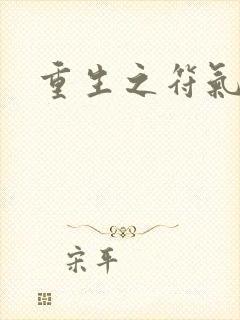 重生之符氣
宋平